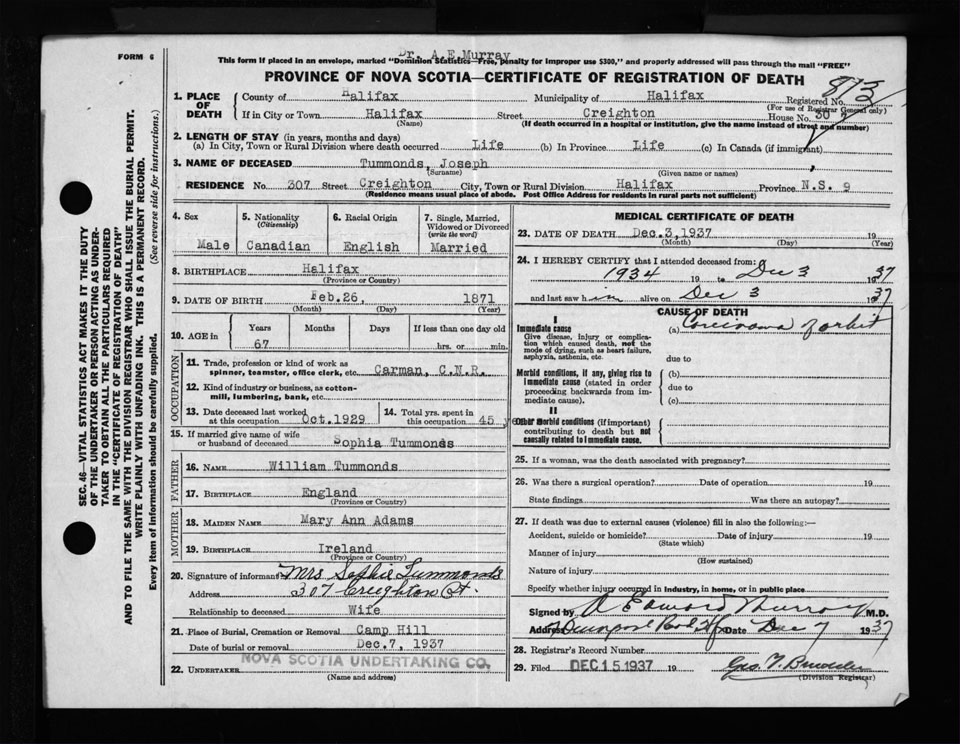 FORM 6
Dr. A.E.Murray
This form if placed in an envelope, marked "Dominion Statistics—Free, penalty for improper use $300," and properly addressed will pass through the mail "FREE"
PROVINCE OF NOVA SCOTIA—CERTIFICATE OF REGISTRATION OF DEATH
813
1. PLACE OF DEATH County of Halifax Municipality of Halifax Registered No.
(For use of Registrar General only)
If in City or Town Halifax Street Creighton House No. 307
(Name) (If death occurred in a hospital or institution, give the name instead of street and number)
2. LENGTH OF STAY (in years, months and days)
(a) In City, Town or Rural Division where death occurred Life (b) In Province Life (c) In Canada (if immigrant)
3. NAME OF DECEASED Tummonds, Joseph
(Surname) (Given name or names)
RESIDENCE No. 307 Street Creighton City, Town or Rural Division Halifax Province N.S. 9
(Residence means usual place of abode. Post Office Address for residents in rural parts not sufficient)
4. Sex 5. Nationality (Citizenship) 6. Racial Origin 7. Single, Married, Widowed or Divorced (write the word)
Male Canadian English Married
8. BIRTHPLACE Halifax
(Province or Country)
9. DATE OF BIRTH Feb.26, 1871
(Month) (Day) (Year)
10. AGE in Years Months Days If less than one day old
67 hrs. or min.
OCCUPATION
11. Trade, profession or kind of work as
spinner, teamster, office clerk, etc. Carman, C.N.R.
12. Kind of industry or business, as cotton-
mill, lumbering, bank, etc.
13. Date deceased last worked
at this occupation Oct.1929
14. Total yrs. spent in
this occupation 45
15. If married give name of wife
or husband of deceased Sophia Tummonds
FATHER
16. NAME William Tummonds
17. BIRTHPLACE England
(Province or Country)
MOTHER
18. MAIDEN NAME Mary Ann Adams
19. BIRTHPLACE Ireland
(Province or Country)
20. Signature of informant Mrs Sophie Tummonds
Address 307 Creighton St.
Relationship to deceased Wife
21. Place of Burial, Cremation or Removal Camp Hill
Date of burial or removal Dec.7, 1937
22. UNDERTAKER NOVA SCOTIA UNDERTAKING CO.
(Name and address)
MEDICAL CERTIFICATE OF DEATH
23. DATE OF DEATH Dec.3,1937 19
(Month) (Day) (Year)
24. I HEREBY CERTIFY that I attended deceased from:
1934 19 to Dec 3 1937
and last saw him alive on Dec 3 1937
CAUSE OF DEATH
I
Immediate cause (a) Carcinoma of orbit
Give disease, injury or complica-
tion which caused death, not the
mode of dying, such as heart failure,
asphyxia, asthenia, etc. due to
Morbid conditions, if any, giving rise to (b)
immediate cause (stated in order due to
proceeding backwards from im-
mediate cause). (c)
II
Other morbid conditions (if important)
contributing to death but not
causally related to immediate cause.
25. If a woman, was the death associated with pregnancy?
26. Was there a surgical operation? Date of operation 19
State findings Was there an autopsy?
27. If death was due to external causes (violence) fill in also the following:—
Accident, suicide or homicide? Date of injury 19
(State which)
Manner of injury
(How sustained)
Nature of injury
Specify whether injury occurred in industry, in home, or in public place
Signed by A Edward Murray M.D.
Address Date Dec 7 1937
28. Registrar's Record Number
29. Filed DEC 15 1937 19
(Division Registrar)
SEC. 46—VITAL STATISTICS ACT MAKES IT THE DUTY
OF THE UNDERTAKER OR PERSON ACTING AS UNDER-
TAKER TO OBTAIN ALL THE PARTICULARS REQUIRED
IN THE "CERTIFICATE OF REGISTRATION OF DEATH"
AND TO FILE THE SAME WITH THE DIVISION REGISTRAR WHO SHALL ISSUE THE BURIAL PERMIT.
WRITE PLAINLY WITH UNFADING INK. THIS IS A PERMANENT RECORD.
Every item of information should be carefully supplied. (See reverse side for instructions.)